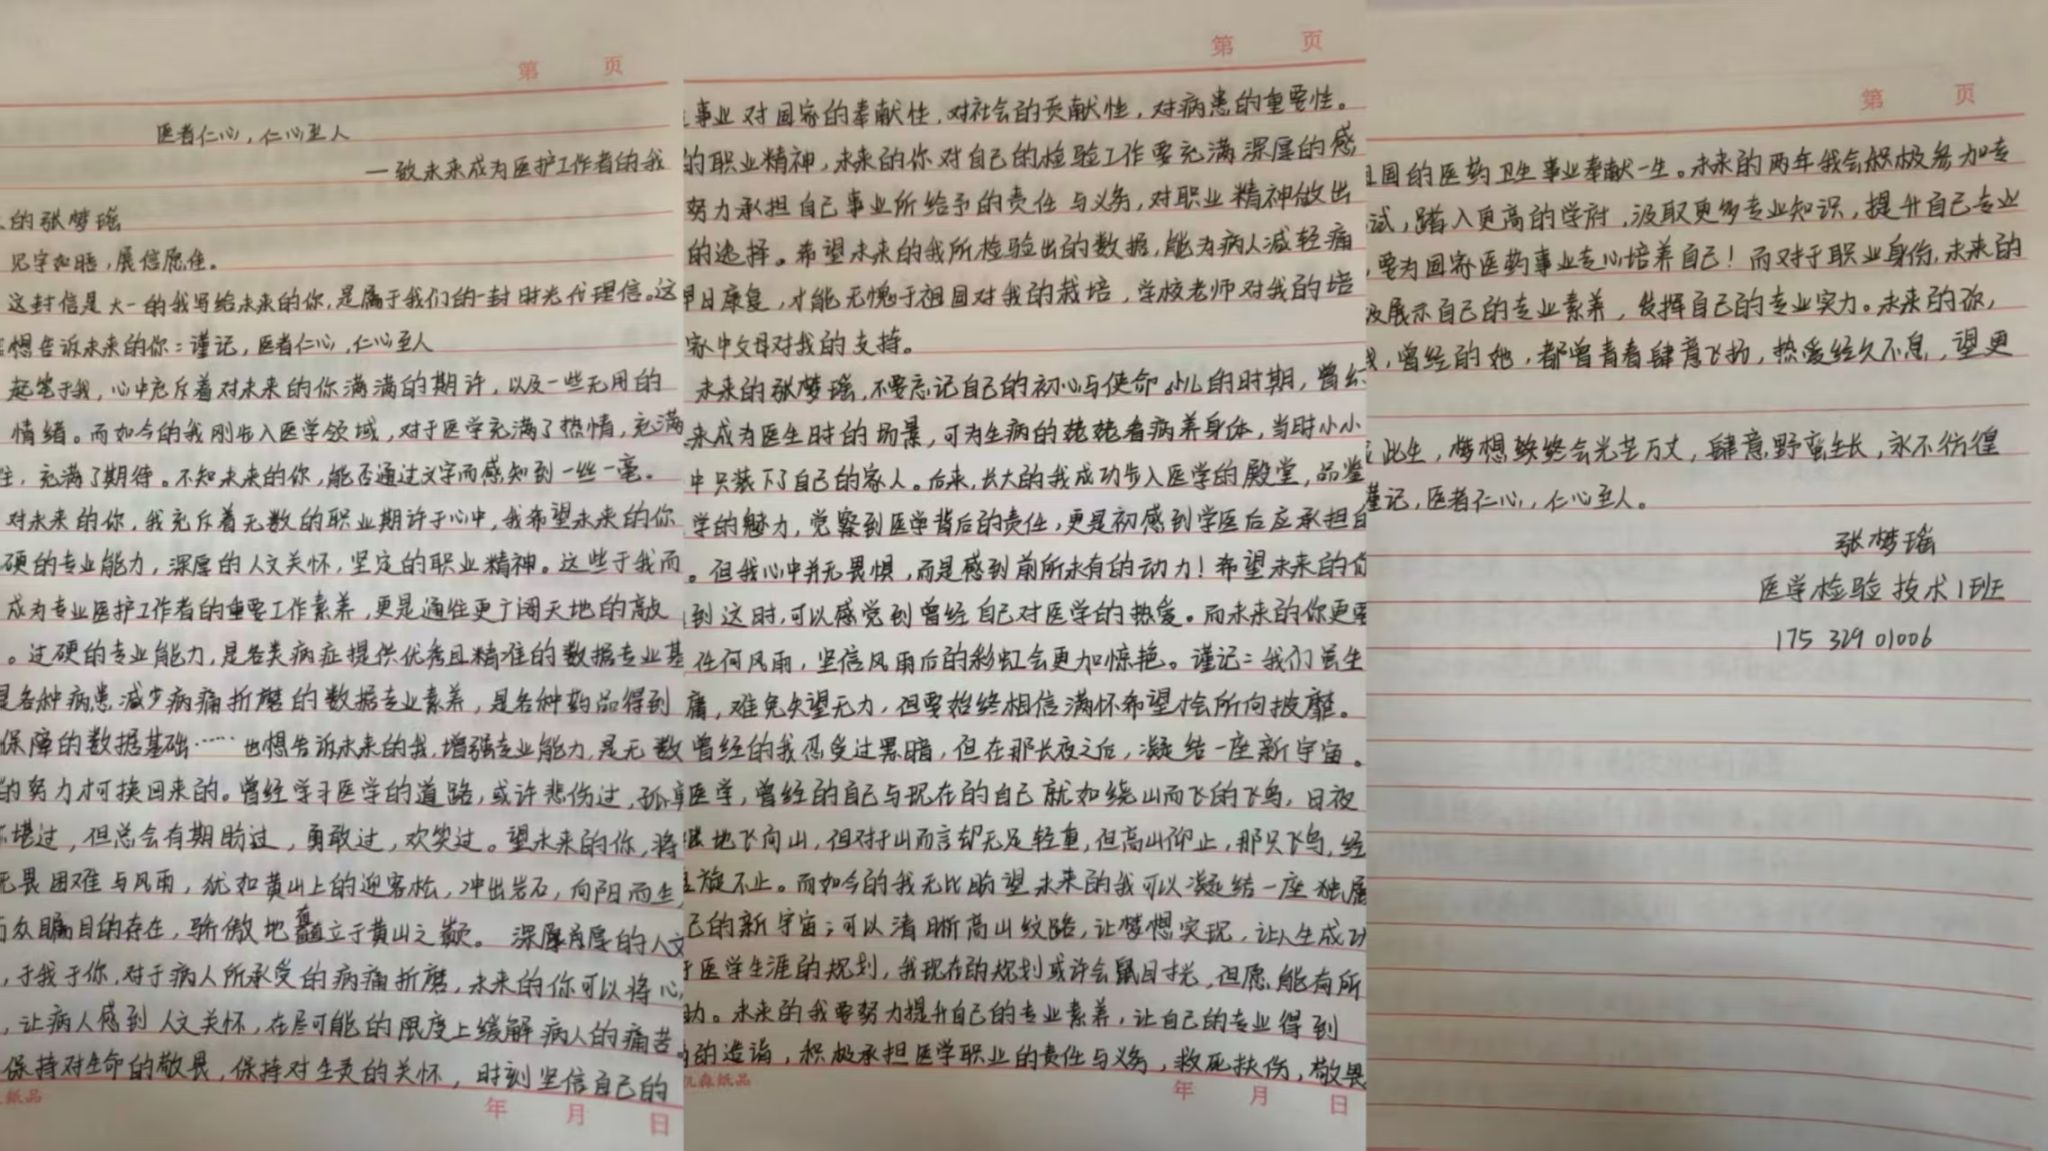 第 页
医者仁心，仁心至人
—致未来成为医护工作者的我
的张梦瑶
见字如晤，展信愿佳。
这封信是大一的我写给未来的你，是属于我们的一封时光代理信。这
想告诉未来的你：谨记，医者仁心，仁心至人
起笔于我，心中充斥着对未来的你满满的期许，以及一些无用的
情绪。而如今的我刚步入医学领域，对于医学充满了热情，充满
充满了期待。不知未来的你，能否通过文字而感知到一丝一毫。
对未来的你，我充斥着无数的职业期许于心中，我希望未来的你
硬的专业能力，深厚的人文关怀，坚定的职业精神。这些于我而
成为专业医护工作者的重要工作素养，更是通往更广阔天地的敲
。过硬的专业能力，是各类病症提供优秀且精准的数据专业基
是各种病患减少病痛折磨的数据专业素养，是各种药品得到
保障的数据基础……也想告诉未来的我，增强专业能力，是无数
的努力才可换回来的。曾经学习医学的道路，或许悲伤过，孤单
堪过，但总会有期盼过，勇敢过，欢笑过。望未来的你，将
无畏困难与风雨，犹如黄山上的迎客松，冲出岩石，向阳而生，
众瞩目的存在，骄傲地矗立于黄山之巅。深厚的人文
，于我于你，对于病人所承受的病痛折磨，未来的你可以将心
，让病人感到人文关怀，在尽可能的限度上缓解病人的痛苦。
保持对生命的敬畏，保持对生灵的关怀，时刻坚信自己的
纸品
年 月 日
第 页
事业对国家的奉献性，对社会的贡献性，对病患的重要性。
的职业精神，未来的你对自己的检验工作要充满深厚的感
努力承担自己事业所给予的责任与义务，对职业精神做出
的选择。希望未来的我所检验出的数据，能为病人减轻痛
早日康复，才能无愧于祖国对我的栽培，学校老师对我的培
家中父母对我的支持。
未来的张梦瑶，不要忘记自己的初心与使命。小儿的时期，曾幻
来成为医生时的场景，可为生病的姥姥看病养身体，当时小小
中只装下了自己的家人。后来，长大的我成功步入医学的殿堂，品鉴
学的魅力，觉察到医学背后的责任，更是初感到学医后应承担自
。但我心中并无畏惧，而是感到前所未有的动力！希望未来的你
到这时，可以感觉到曾经自己对医学的热爱。而未来的你更要
任何风雨，坚信风雨后的彩虹会更加惊艳。谨记：我们虽生
庸，难免失望无力，但要始终相信满怀希望才会所向披靡。
曾经的我忍受过黑暗，但在那长夜之后，凝结一座新宇宙。
医学，曾经的自己与现在的自己就如绕山而飞的飞鸟，日夜
地飞向山，但对于山而言却无足轻重，但高山仰止，那只飞鸟，经
旋不止。而如今的我无比盼望未来的我可以凝结一座独属
己的新宇宙；可以清晰高山纹路，让梦想实现，让人生成功
于医学生涯的规划，我现在的规划或许会鼠目寸光，但愿能有所
助。未来的我要努力提升自己的专业素养，让自己的专业得到
的造诣，积极承担医学职业的责任与义务，救死扶伤，敬畏
凯森纸品
年 月 日
第 页
国的医药卫生事业奉献一生。未来的两年我会积极参加专
试，踏入更高的学府，汲取更多专业知识，提升自己专业
，要为国家医药事业专心培养自己！而对于职业身份，未来的
极展示自己的专业素养，发挥自己的专业实力。未来的你，
我，曾经的她，都曾青春肆意飞扬，热爱经久不息，望更
此生，梦想终会光芒万丈，肆意野蛮生长，永不彷徨
谨记，医者仁心，仁心至人。
张梦瑶
医学检验技术1班
175 329 01006